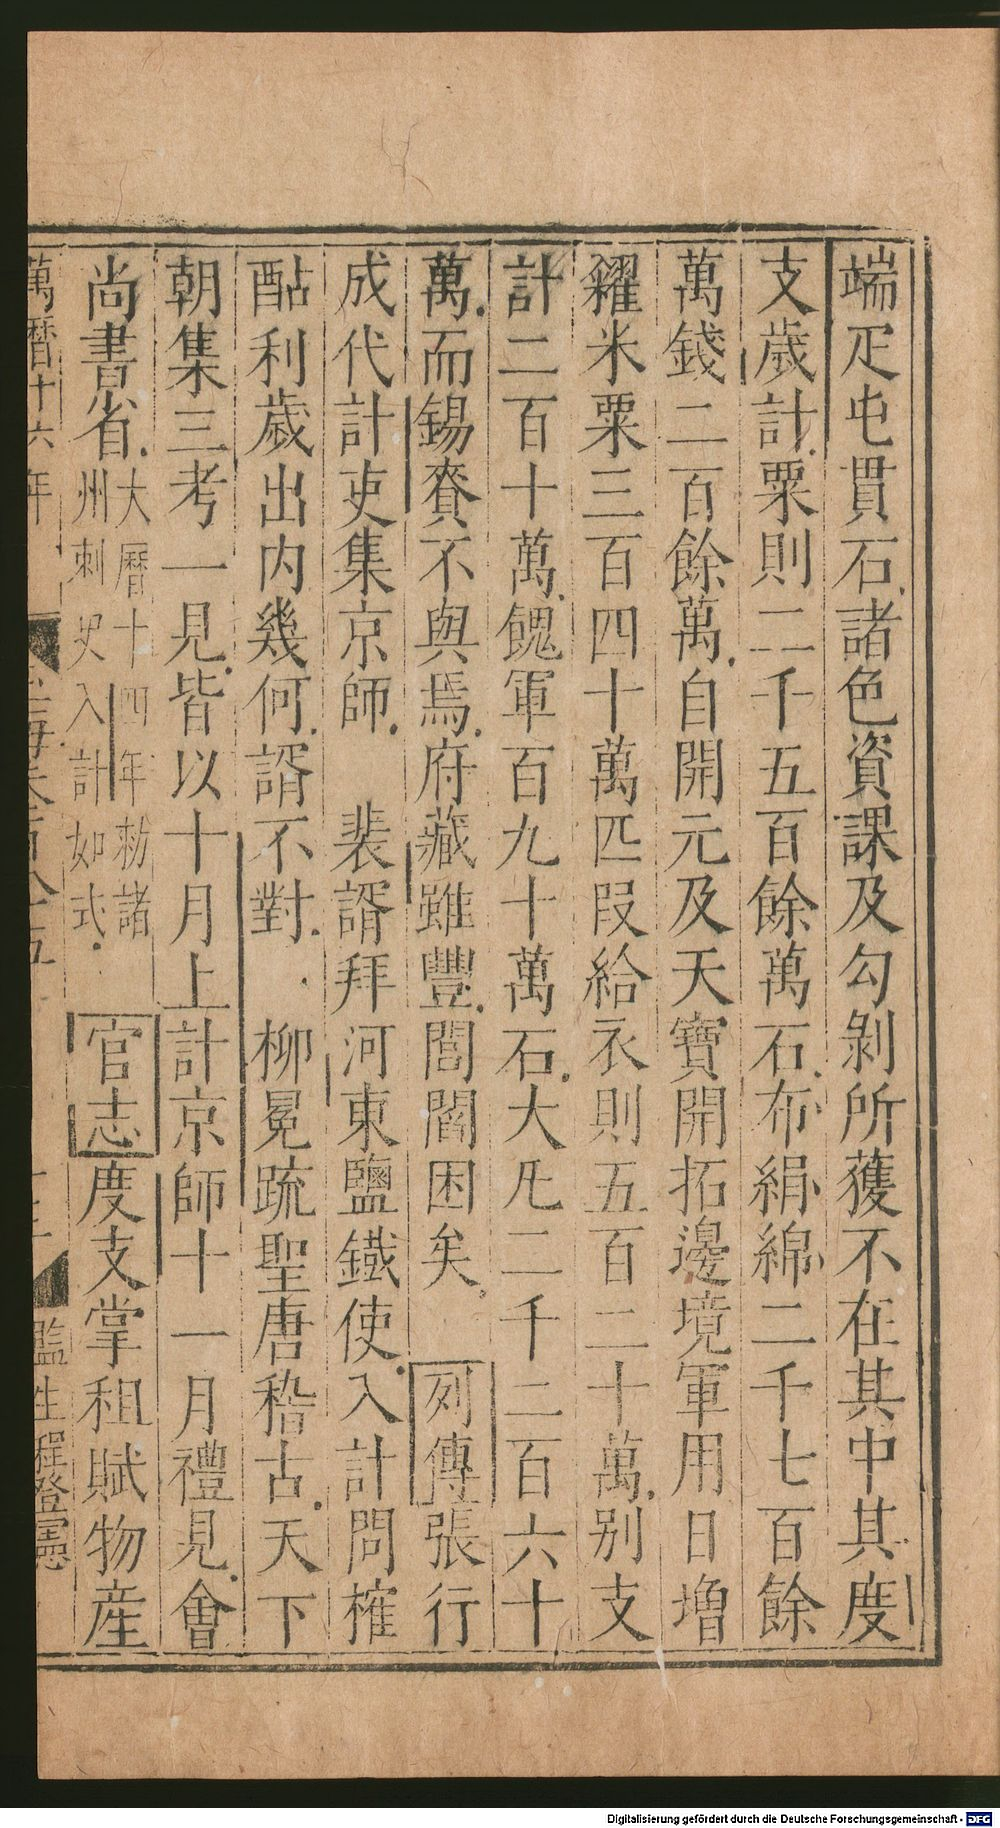 端疋屯貫石諸色資課及勾剝所獲不在其中其度
支歲計粟則二千五百餘萬石布絹綿二千七百餘
萬錢二百餘萬自開元及天寶開拓邊境軍用日增
糴米粟三百四十萬匹段給衣則五百二十萬別支
計二百十萬餽軍百九十萬石大凡二千二百六十
萬而錫賚不與焉府藏雖豐閭閻困矣 列傳張行
成代計吏集京師 裴諝拜河東鹽鐵使入計問榷
酤利歲出內幾何諝不對 柳冕疏聖唐稽古天下
朝集三考一見皆以十月上計京師十一月禮見會
尚書省大曆十四年勑諸州刺史入計如式 官志度支掌租賦物產
萬曆十六年 玉海卷百八十五 監生程登憲
Digitalisierung gefördert durch die Deutsche Forschungsgemeinschaft - DFG